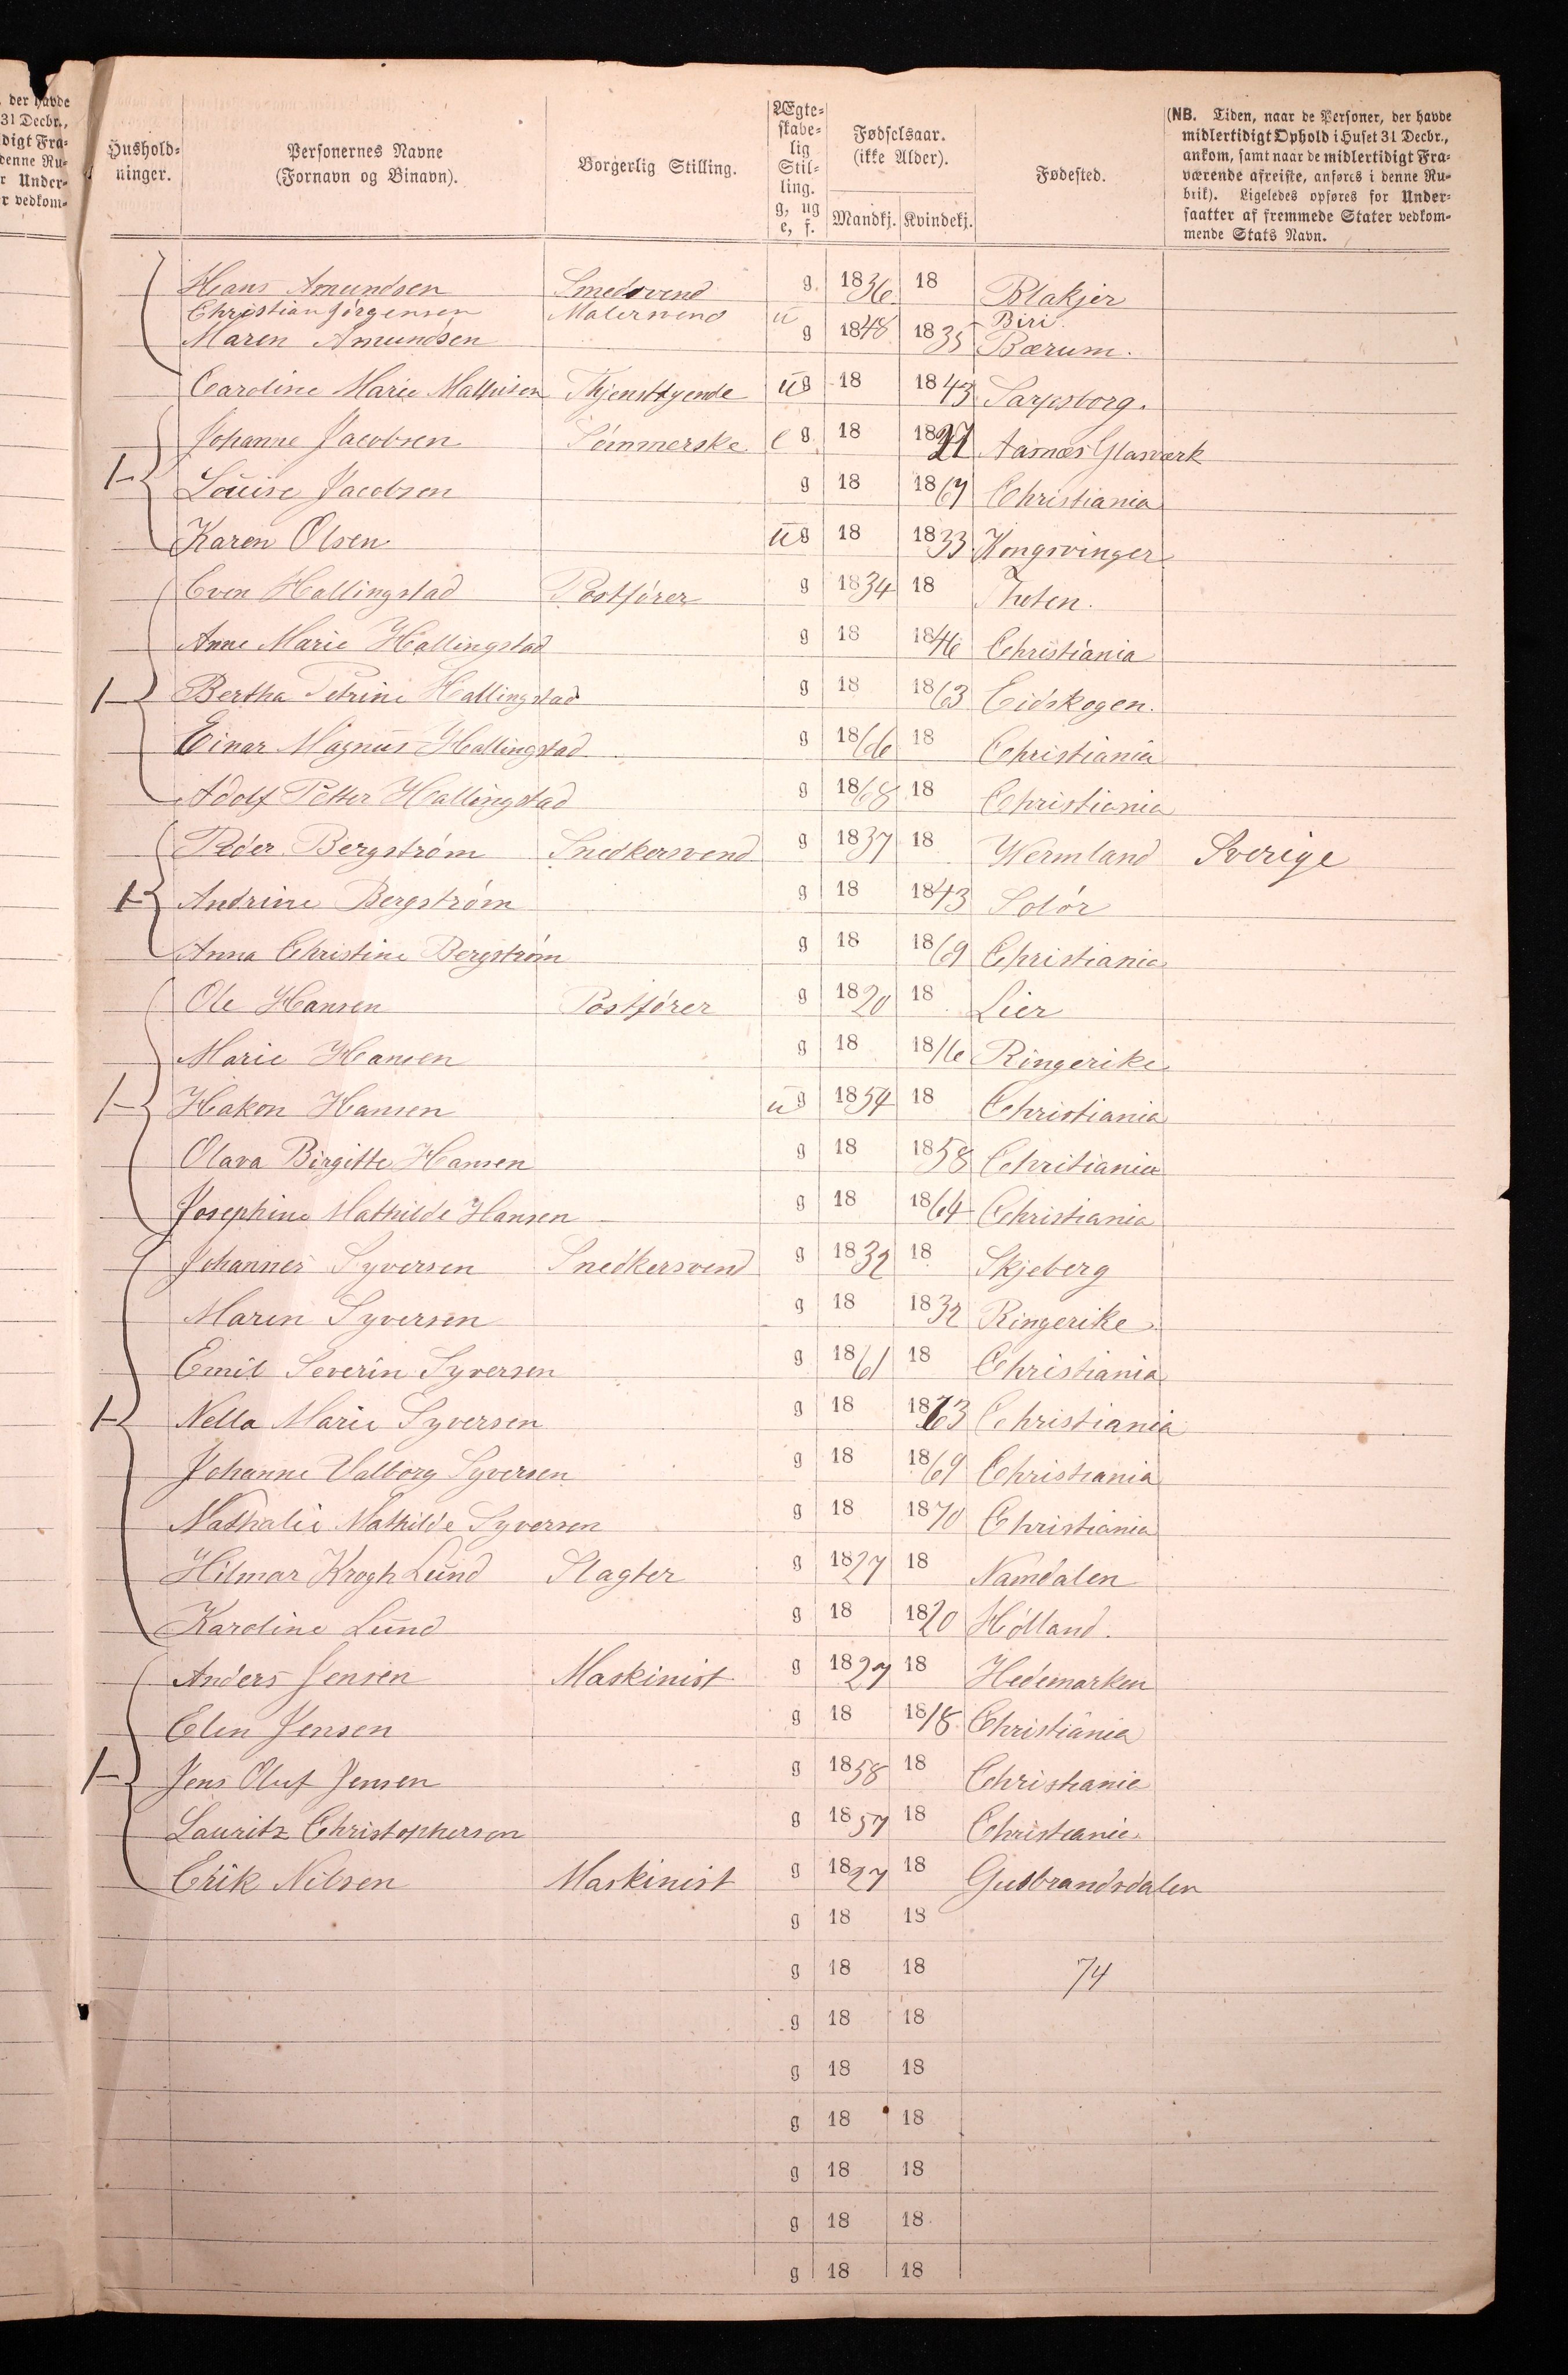 der havde
31 Decbr.,
digt Fra-
denne Ru-
r Under-
r vedkom-
Hushold-
ninger.
Personernes Navne
(Fornavn og Binavn).
Borgerlig Stilling.
Ægte-
skabe-
lig
Stil-
ling.
g, ug
e, f.
Fødselsaar.
(ikke Alder).
Mandkj. Kvindekj.
Fødested.
(NB. Tiden, naar de Personer, der havde
midlertidigt Ophold i Huset 31 Decbr.,
ankom, samt naar de midlertidigt Fra-
værende afreiste, anføres i denne Ru-
brik). Ligeledes opføres for Under-
saatter af fremmede Stater vedkom-
mende Stats Navn.
Hans Amundsen Smedsvend g. 1836 18 Blakjer
Christian Jörgensen Malersvend u 1848 Biri
Maren Amundsen g 1835 Bærum.
Caroline Marie Mathisen Thjenstgyende ug 18 1843 Sarpsborg.
Johanne Jacobsen Sömmerske e g 18 1827 Aasnæs Glasværk
1 Louise Jacobsen g 18 1867 Christiania
Karen Olsen ug 18 1833 Kongsvinger
Even Hallingstad Postförer g 1834 18 Thoten.
Anne Marie Hallingstad g 18 1846 Christiania
1 Bertha Petrine Hallingstad g 18 1863 Eidskogen.
Einar Magnus Hallingstad g 1866 18 Christiania
Adolf Petter Hallingstad g 1868 18 Christiania
Peder Bergström Snedkersvend g 1837 18 Wermland Sverige
1 Andrine Bergström g 18 1843 Solör
Anna Christine Bergström g 18 1869 Christiania
Ole Hansen Postförer g 1820 18 Lier
Marie Hansen g 18 1816 Ringerike
1 Hakon Hansen ug 1854 18 Christiania
Olava Birgitte Hansen g 18 1858 Chritiania
Josephine Mathilde Hansen g 18 1864 Christiania
Johannes Syversen Snedkersvend g 1832 18 Skjeberg
Maren Syversen g 18 1832 Ringerike
Emil Severin Syversen g 1861 18 Christiania
1 Nella Marie Syversen g 18 1863 Christiania
Johanne Valborg Syversen g 18 1869 Christiania
Nathalie Mathilde Syversen g 18 1870 Christiania
Hilmar Krogh Lund Slagter g 1827 18 Namdalen
Karoline Lund g 18 1820 Hölland.
Anders Jensen Maskinist g 1827 18 Hedemarken
Elen Jensen g 18 1818 Christiania
1 Jens Oluf Jensen g 1858 18 Christiania
Lauritz Christophersen g 1857 18 Christiania
Erik Nilsen Maskinist g 1827 18 Gudbrandsdalen
g 18 18
g 18 18 74
g 18 18
g 18 18
g 18 18
g 18 18
g 18 18
g 18 18